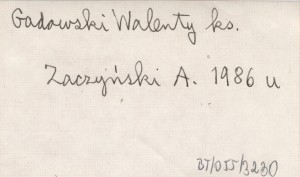 Gadowski Walenty ks.
Zaczyński A. 1986 u
BT/055/3230